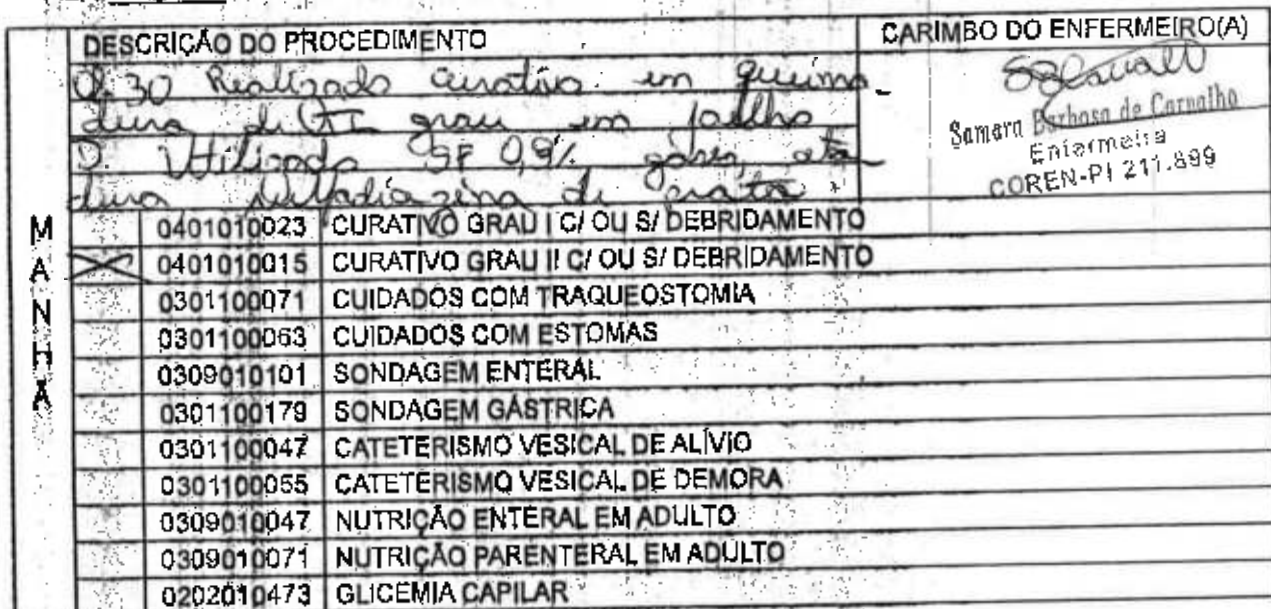 DESCRIÇÃO DO PROCEDIMENTO
CARIMBO DO ENFERMEIRO(A)
30 Realizado curativo em queima-
dura de grau em joelho
D. Utilizado SF 0,9% gases, ata
dura sulfadiazina de prata.
Samara Barbosa de Carvalho
Enfermeira
COREN-PI 211.899
MANHÃ
0401010023 CURATIVO GRAU I C/ OU S/ DEBRIDAMENTO
X 0401010015 CURATIVO GRAU II C/ OU S/ DEBRIDAMENTO
0301100071 CUIDADOS COM TRAQUEOSTOMIA
0301100063 CUIDADOS COM ESTOMAS
0309010101 SONDAGEM ENTERAL
0301100179 SONDAGEM GÁSTRICA
0301100047 CATETERISMO VESICAL DE ALÍVIO
0301100055 CATETERISMO VESICAL DE DEMORA
0309010047 NUTRIÇÃO ENTERAL EM ADULTO
0309010071 NUTRIÇÃO PARENTERAL EM ADULTO
0202010473 GLICEMIA CAPILAR